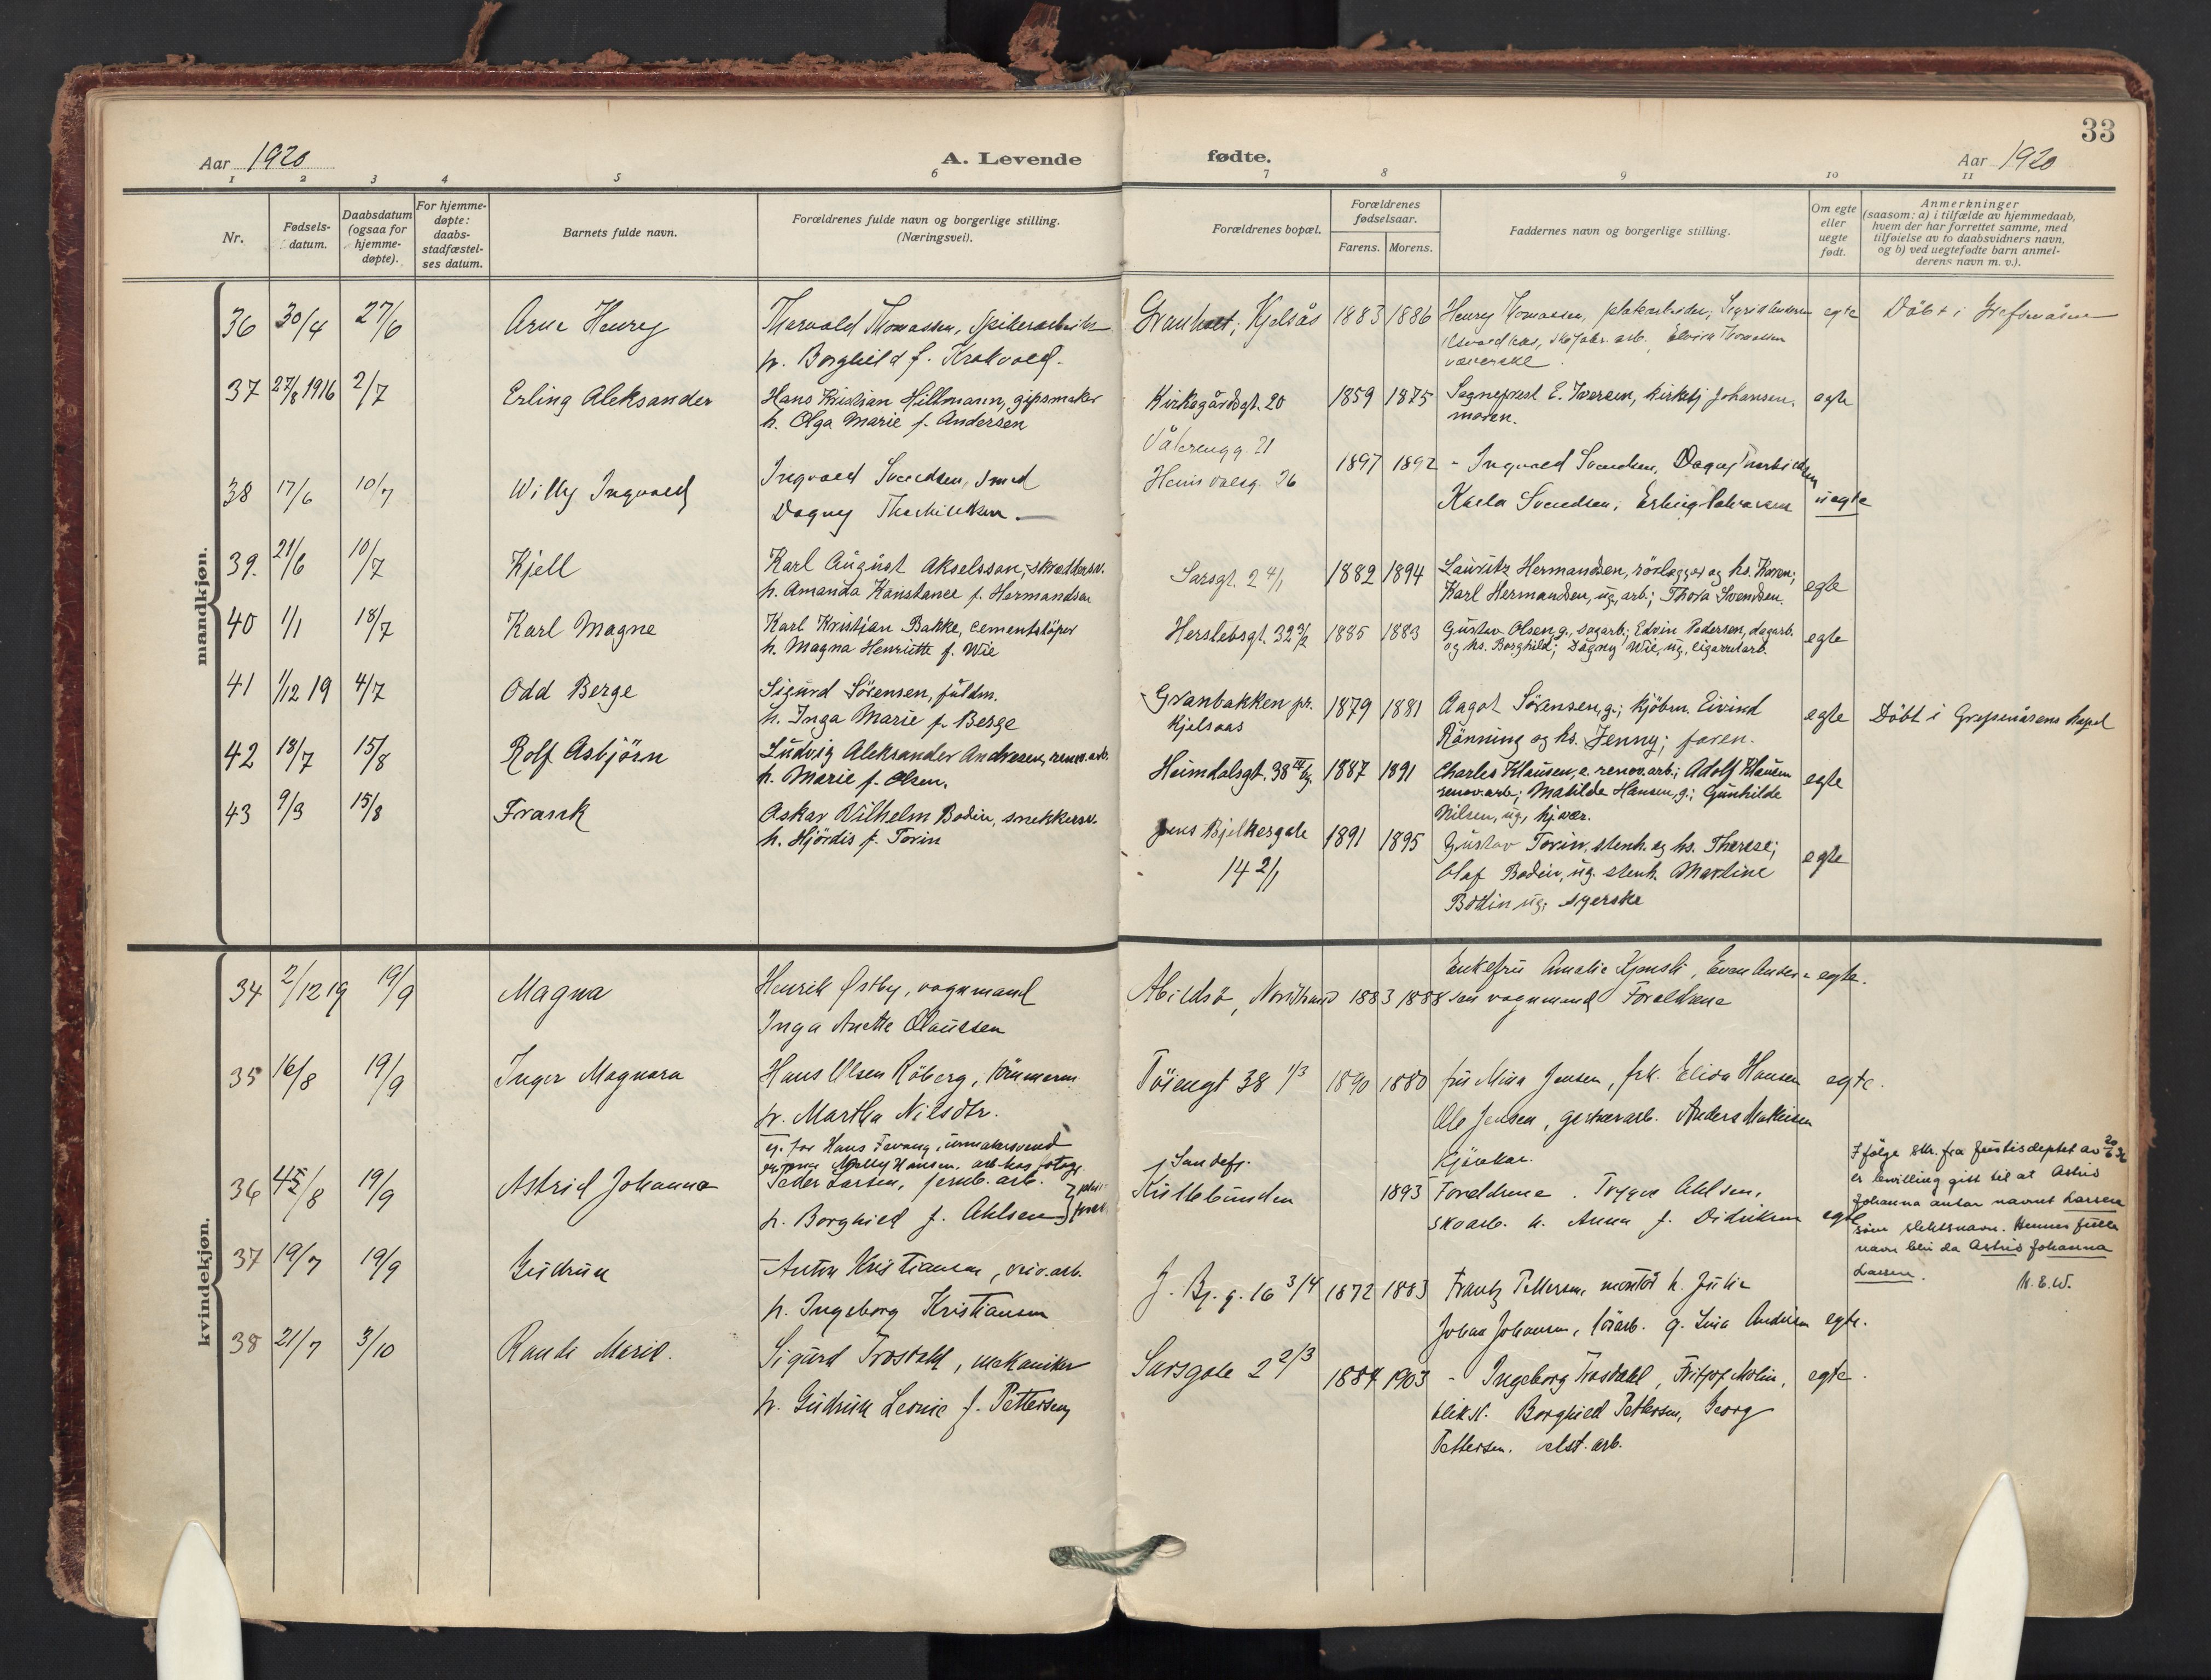 33
Aar 1920
A. Levende fødte.
Aar 1920
1 2 3 4 5 6 7 8 9 10 11
Nr.
Fødsels-
datum.
Daabsdatum
(ogsaa for
hjemme-
døpte).
For hjemme-
døpte:
daabs-
stadfæstel-
ses datum.
Barnets fulde navn.
Forældrenes fulde navn og borgerlige stilling.
(Næringsvei).
Forældrenes bopæl.
Forældrenes
fødselsaar.
Farens. Morens.
Faddernes navn og borgerlige stilling.
Om egte
eller
uegte
født.
Anmerkninger
(saasom: a) i tilfælde av hjemmedaab,
hvem der har forrettet samme, med
tilføielse av to daabsvidners navn,
og b) ved uegtefødte barn anmel-
derens navn m. v.).
mandkjøn.
36 30/4 27/6 Arne Henry Thorvald Thomassen, Kjelsås 1883 1886 Henry Thomassen, egte Döbt i
h. Borghild f. Krokvold. Elvira Thomassen
væverske.
37 27/8 1916 2/7 Erling Aleksander Hans Kristian Hillmann, gipsmaker Kirkegårdsgt. 20 1859 1875 Sogneprest E. Iversen, kirketj. Johansen, egte
h. Olga Marie f. Andersen moren.
Vålerengg. 21
38 17/6 10/7 Willy Ingvald Ingvald Svendsen, smed 1897 1892 - Ingvald Svendsen, Dagny
Dagny Heimdalsg. 26 Karla Svendsen, Erling uegte
39. 21/6 10/7 Kjell Karl August Akselsson, skræddersv. Sarsgt. 2 4/1 1882 1894 Lauritz Hermandsen, rörlegger og hs. Karen; egte
h. Amanda Konstance f. Hermandsen Karl Hermandsen, ug, arb.; Thora Svendsen.
40 1/1 18/7 Karl Magne Karl Kristian Bakke, cementstöper Herslebsgt. 32 3/2 1885 1883 Gustav Olsen, g., sagarb.; Edvin Pedersen, dagarb. egte
h. Magna Henriette f. Wie og hs. Borghild; Dagny Wie, ug, cigaretarb.
41 1/12 19 4/7 Odd Berge Sigurd Sörensen, fuldm. Granbakken pr. 1879 1881 Aagot Sörensen, g.; kjöbm. Eivind egte Döbt i Grefsenåsens kapel
h. Inga Marie f. Berge Kjelsaas Rönning og hs. Jenny; faren.
42 18/7 15/8 Rolf Asbjörn Ludvig Aleksander Andresen, renov.arb. Heimdalsgt. 38 1887 1891 Charles Klausen, e. renov.arb.; Adolf Klausen egte
h. Marie f. Olsen. renov.arb; Mathilde Hansen, g.; Gunhilde
Nilsen, ug,
43 9/3 15/8 Frank Oskar Vilhelm Bodin, snekkersv. Jens Bjelkesgate 1891 1895 Gustav Torin, stenh. og hs. Therese; egte
h. Hjördis f. Torin 14 2/1 Olaf Bodin, ug. stenh. Martine
Bodin ug, syerske
kvindekjøn.
34 2/12 19 19/9 Magna Henrik Østby, vognmand Abildsö, Nordstrand 1883 1888 Enkefru Amalie Evan Ander- egte.
Inga Anette Olaussen sen vognmand Foreldrene
35 16/8 19/9 Inger Magnora Hans Olsen Röberg, tömmerm. Töiengt 38 1/3 1890 1880 fru Mina Jensen, frk. Elida Hansen egte.
h. Martha Nilsdtr. Ole Jensen, Anders
eg. for Hans Tevang, urmakersvend
Molly Hansen.
36 /8 19/9 Astrid Johanna Peder Larsen, jernb. arb. 1893 Foreldrene. Trygve Ahlsen,
h. Borghild f. Ahlsen skoarb. h. Anna f. Didriksen egte
I følge skr. fra Justisdeptet av 20/6 36
er bevilling gitt til at Astrid
Johanna antar navnet Larsen
som slektsnavn. Hennes fulle
navn blir da Astrid Johanna
Larsen. H.E.W.
37 19/7 19/9 Gudrun Anton Kristiansen, J. Bj. g. 16 3/4 1872 1883 Frantz Pettersen, montör h. Julie
h. Ingeborg Kristiansen Johan Johansen, g. Lina Andersen egte.
38 21/7 3/10 Randi Marie. Sigurd Trosdahl, mekaniker Sarsgate 2 2/3 1884 1903 - Ingeborg Trosdahl, Fritjof Molin, egte.
h. Gudrun Leonie f. Pettersen Borghild Pettersen, Georg
Pettersen.